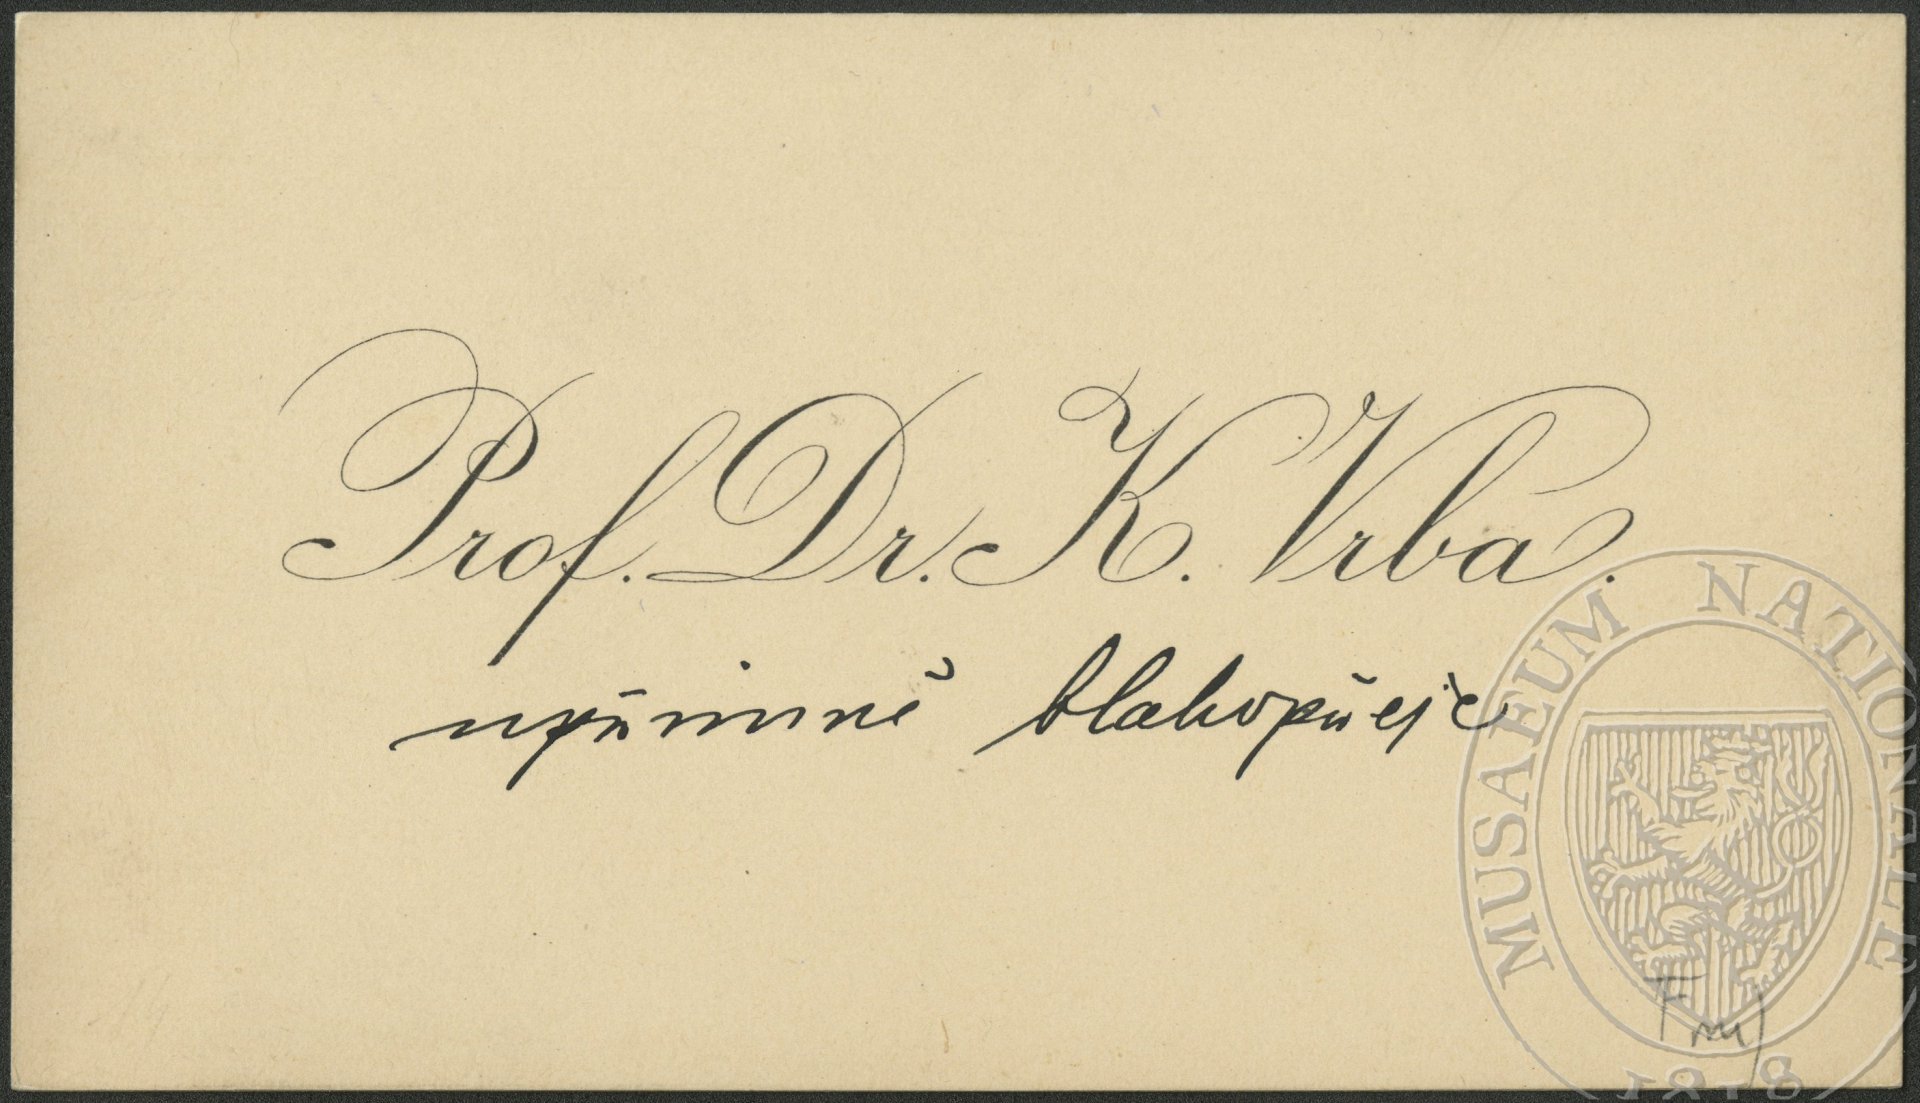 Prof. Dr. K. Vrba.
upřímně blahopřeje
MUSAEUM NATIONALE
1818